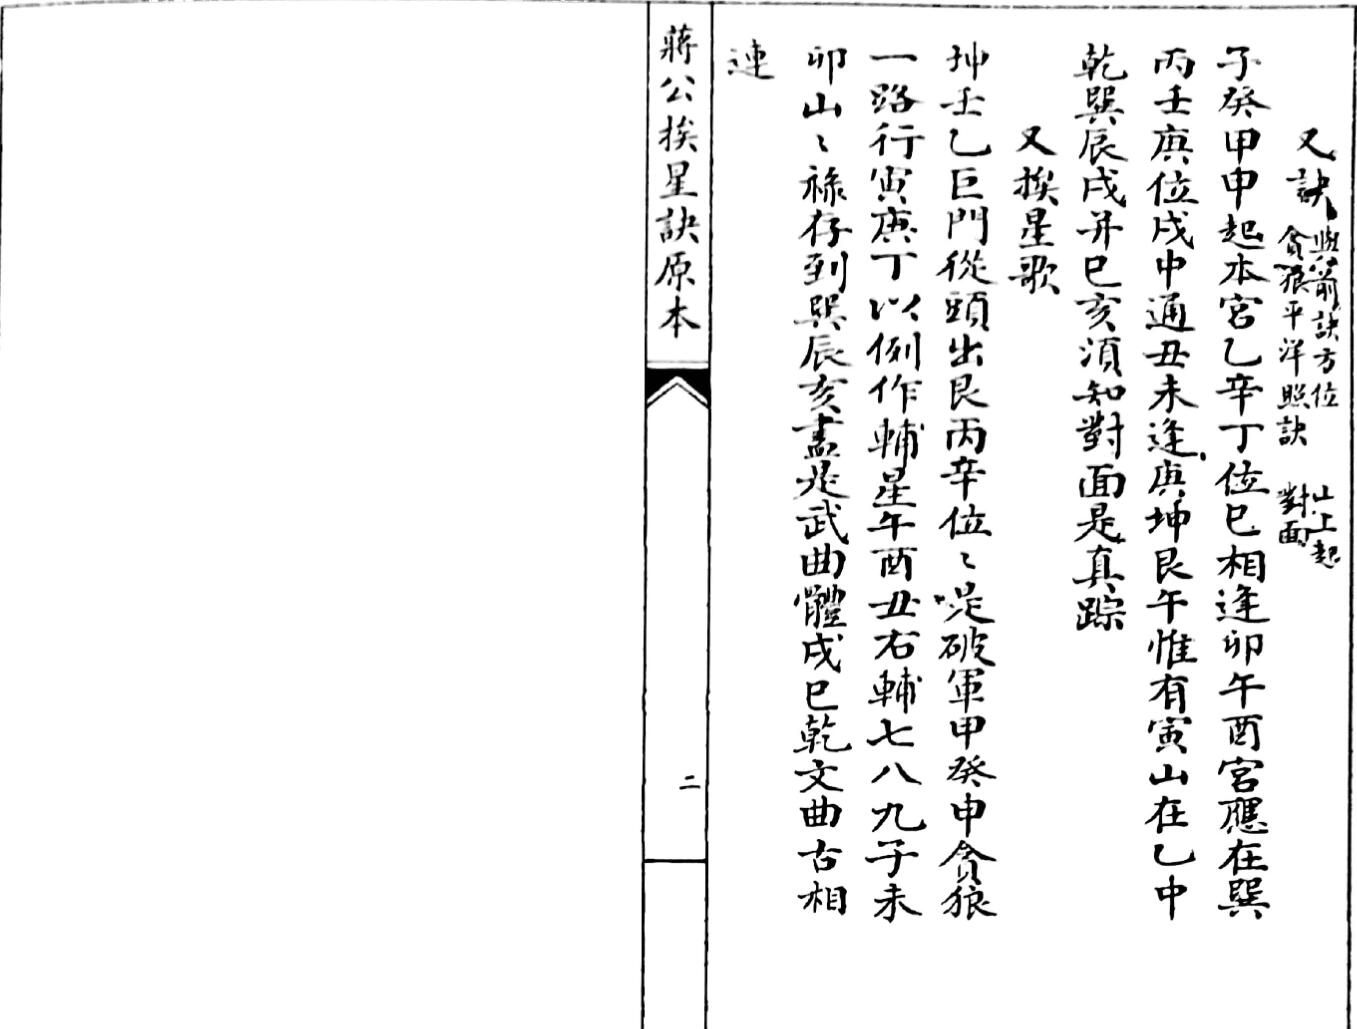 又訣 與前訣方位貪狼平洋照訣 山上起對面
子癸甲申起本宮乙辛丁位巳相逢卯午酉宮應在巽
丙壬庚位戌中通丑未逢庚坤艮午惟有寅山在乙中
乾巽辰戌并巳亥須知對面是真踪
又挨星歌
坤壬乙巨門從頭出艮丙辛位〻是破軍甲癸申貪狼
一路行寅庚丁以例作輔星午酉丑右輔七八九子未
卯山〻祿存到巽辰亥盡是武曲體戌巳乾文曲古相
連
蔣公挨星訣原本
二